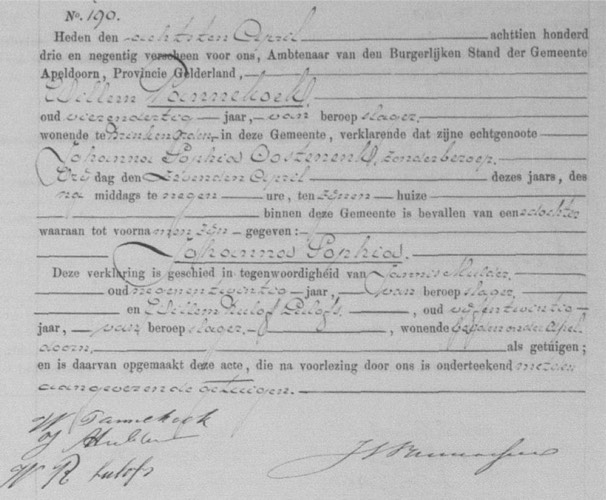 No. 190.
Heden den achtsten April achttien honderd
drie en negentig verscheen voor ons, Ambtenaar van den Burgerlijken Stand der Gemeente
Apeldoorn, Provincie Gelderland,
Willem Pannekoek,
oud vierendertig jaar, van beroep slager,
wonende te Brinkenorden, in deze Gemeente, verklarende dat zijne echtgenoote
Johanna Sophia Oosterenk, zonder beroep,
Vrij dag den zevenden April dezes jaars, des
na middags te negen ure, ten zijnen huize
binnen deze Gemeente is bevallen van eene dochter
waaraan tot voorna men zijn gegeven:
Johanna Sophia.
Deze verklaring is geschied in tegenwoordigheid van Jannis Mulder,
oud negenentwintig jaar, van beroep slager,
en Willem Rulof Rulofs, oud vijfentwintig
jaar, van beroep slager, wonende beiden onder Apel
doorn, als getuigen;
en is daarvan opgemaakt deze acte, die na voorlezing door ons is onderteekend met den
aangever en de getuigen.
W Pannekoek
J Mulder
W R Rulofs